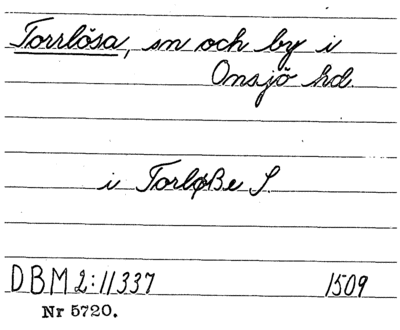 Torrlösa, sn och by i
Onsjö hd.
i Torløße S.
DBM 2:11337 1509
Nr 5720.